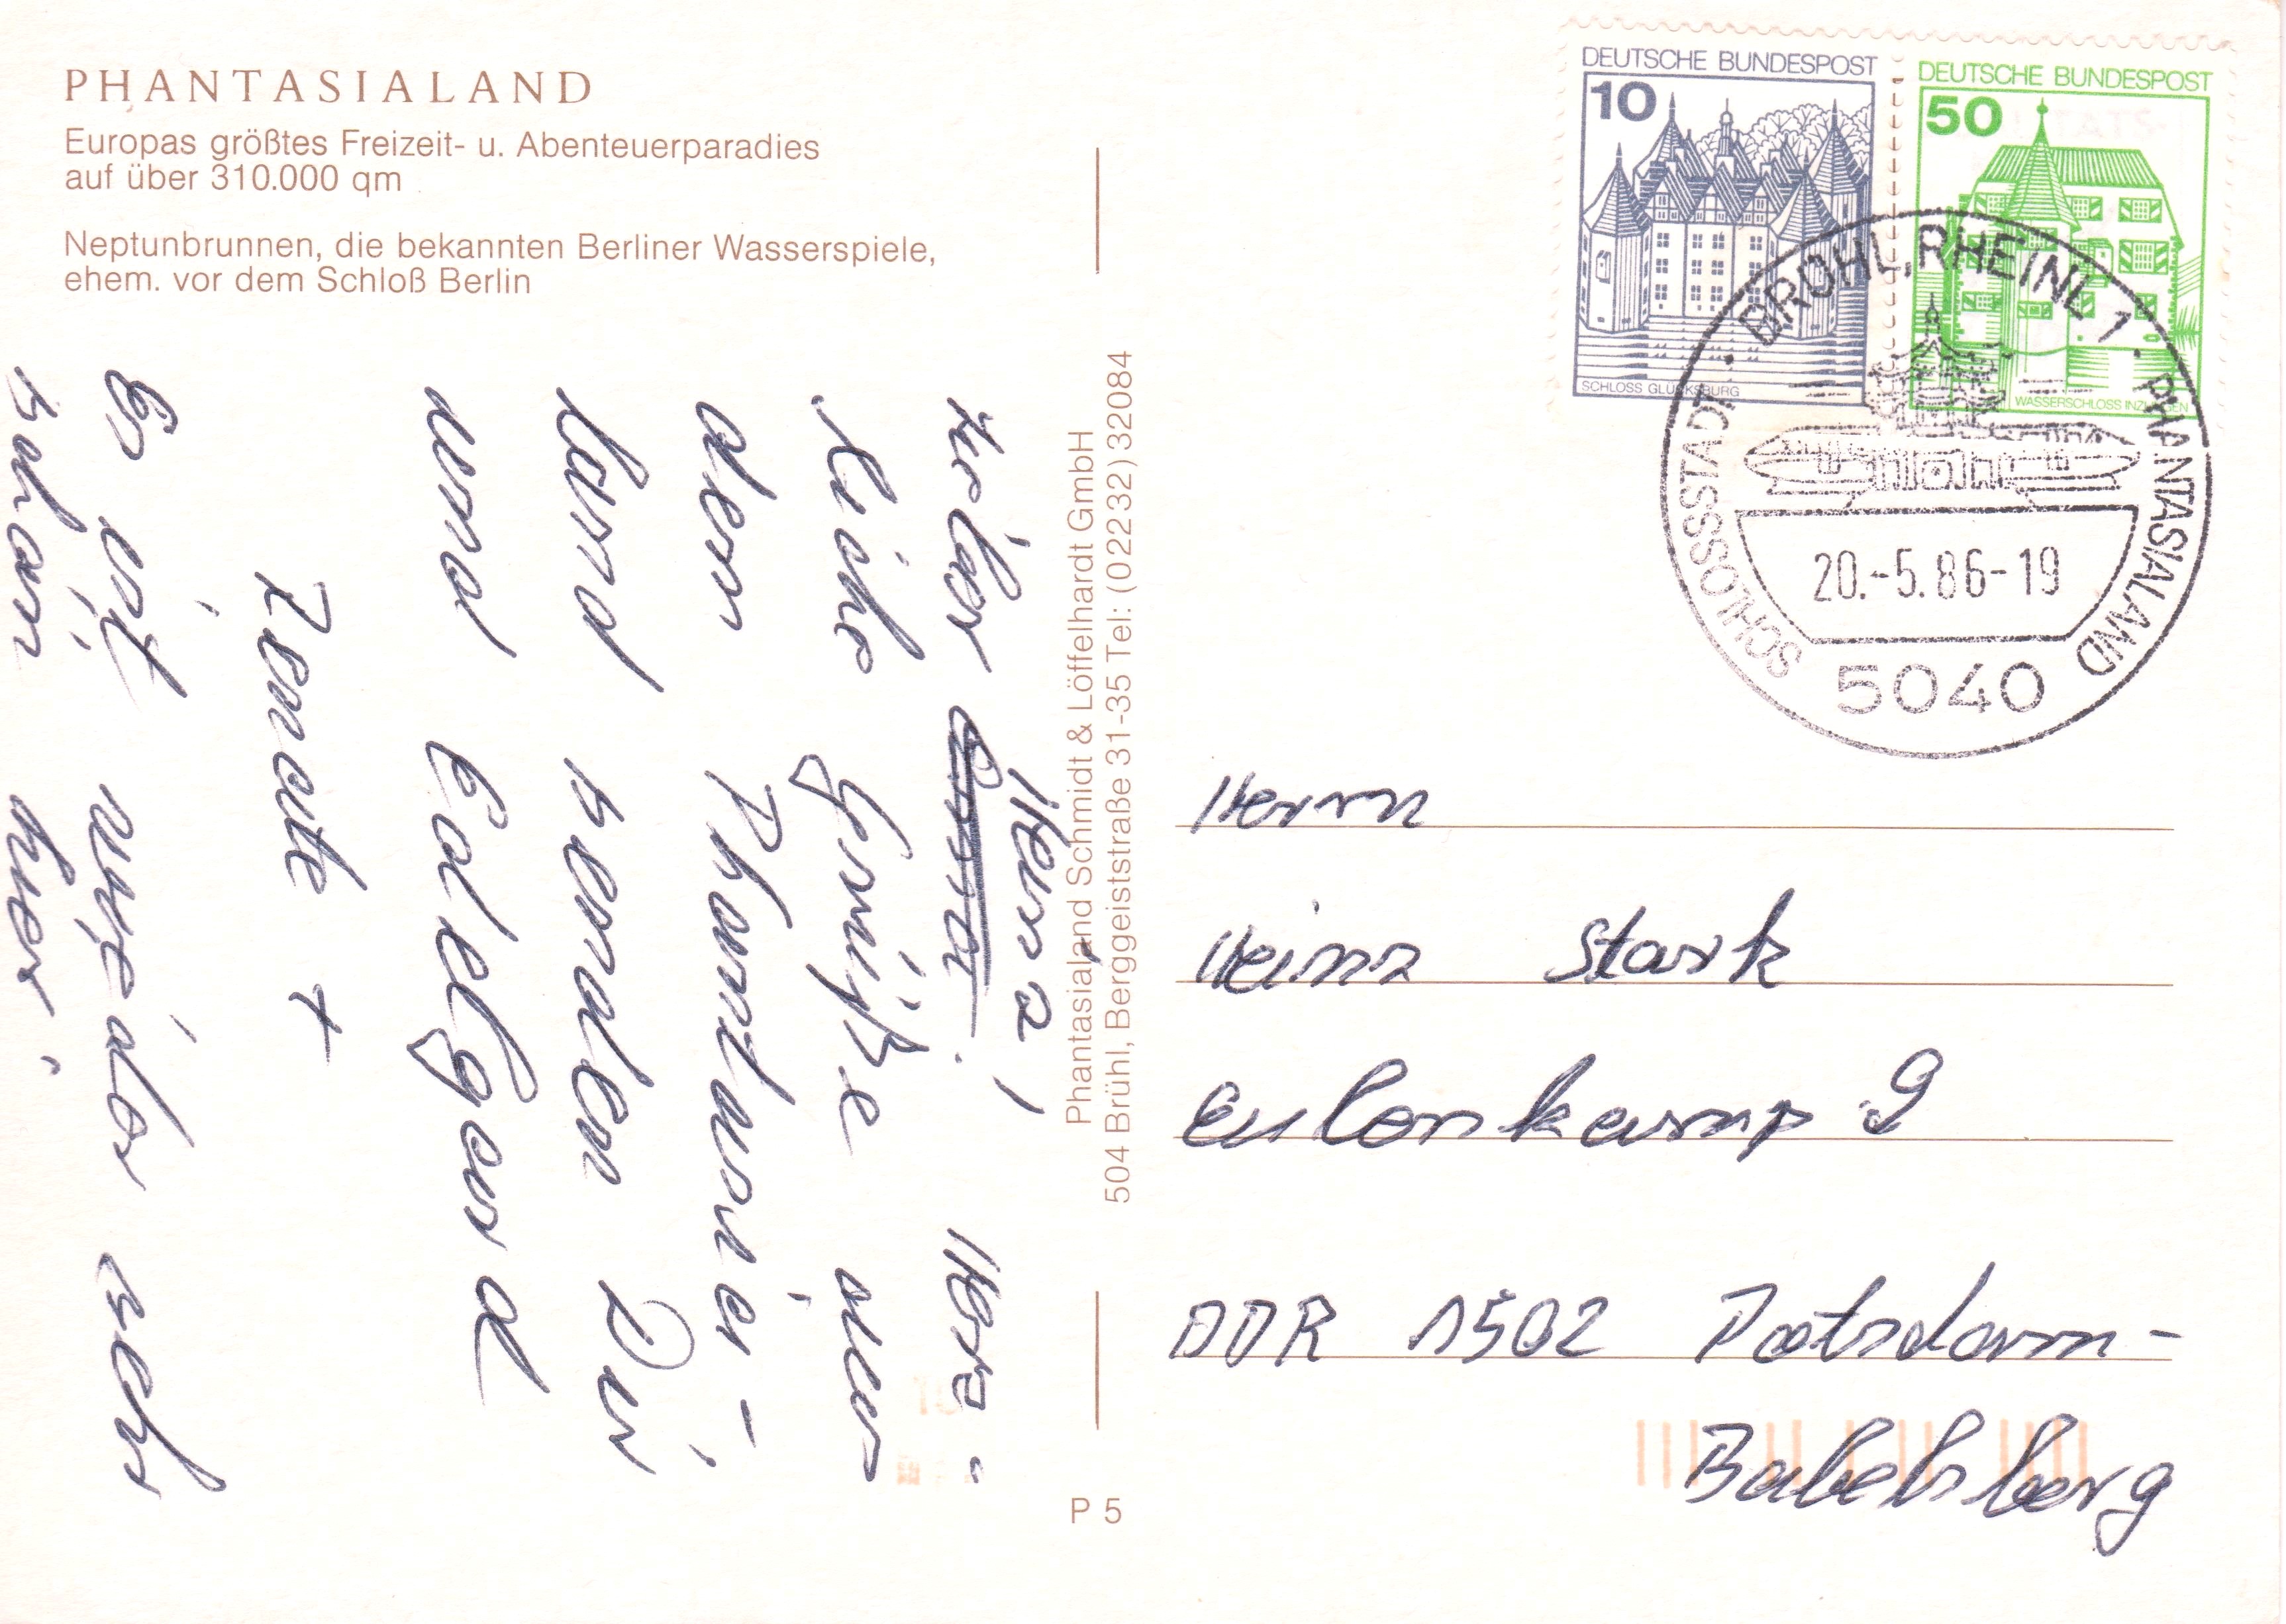 PHANTASIALAND
Europas größtes Freizeit- u. Abenteuerparadies
auf über 310.000 qm
Neptunbrunnen, die bekannten Berliner Wasserspiele,
ehem. vor dem Schloß Berlin
Heinz!
Herz-
liche Grüße aus
dem Phantasia-
land senden Dir
und Edelgard
Renate +
Es ist wieder sehr
schön hier.
Phantasialand Schmidt & Löffelhardt GmbH
504 Brühl, Berggeiststraße 31-35 Tel: (02232) 32084
P 5
DEUTSCHE BUNDESPOST
10
SCHLOSS GLÜCKSBURG
DEUTSCHE BUNDESPOST
50
WASSERSCHLOSS INZLINGEN
BRÜHL, RHEINL 1
SCHLOSSSTADT
PHANTASIALAND
20.-5.86-19
5040
Herrn
Heinz Stark
Eulenkamp 9
DDR 1502 Potsdam-
Babelsberg